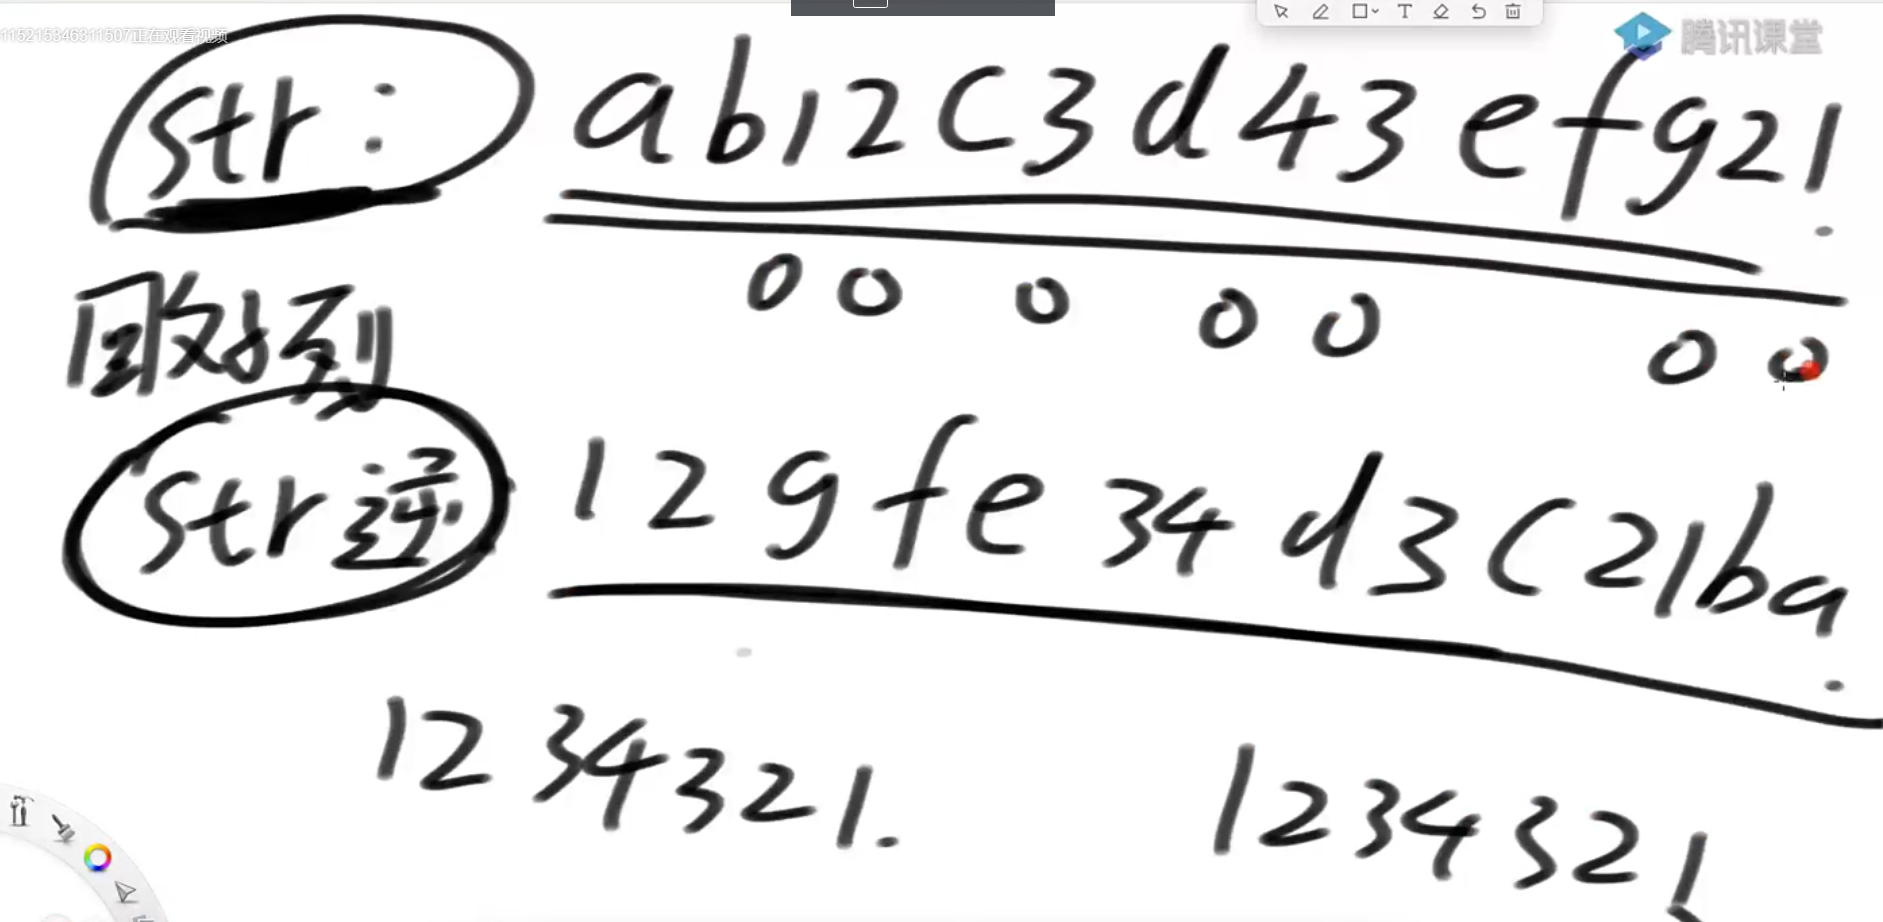 115215346311507正在观看视频
腾讯课堂
str: ab12c3d43efg21.
0 0 0 0 0 0 0
str逆 12gfe34d3c21ba.
1234321. 1234321